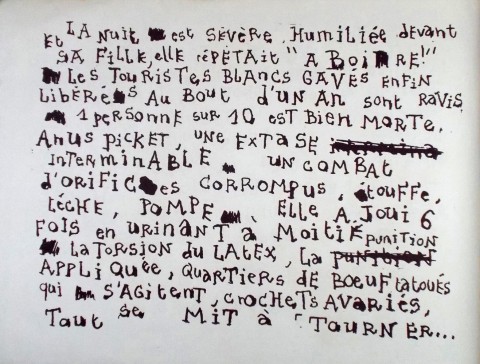 Et LA NUIT est SÉVÈRE. Humiliée devant
SA FILLE, elle répétait "A BOIRE!"
Les TOURISTES BLANCS GAVÉS ENFIN
LIBÉRÉS AU BOUT D'UN AN sont RAVIS,
1 PERSONNE SUR 10 EST BIEN MORTE.
ANUS PICKET, UNE EXTASE
INTERMINABLE UN COMBAT
d'ORIFICES CORROMPUS, étouffe,
LÈCHE, POMPE ELLE A JOUI 6
FOIS en URINANT à MOITIÉ PUNITION
LA TORSION du LATEX, LA PUNITION
APPLIQUÉE, QUARTIERS DE BOEUF TATOUÉS
qui S'AGITENT, CROCHETS AVARIÉS,
TOUT SE MIT À TOURNER...